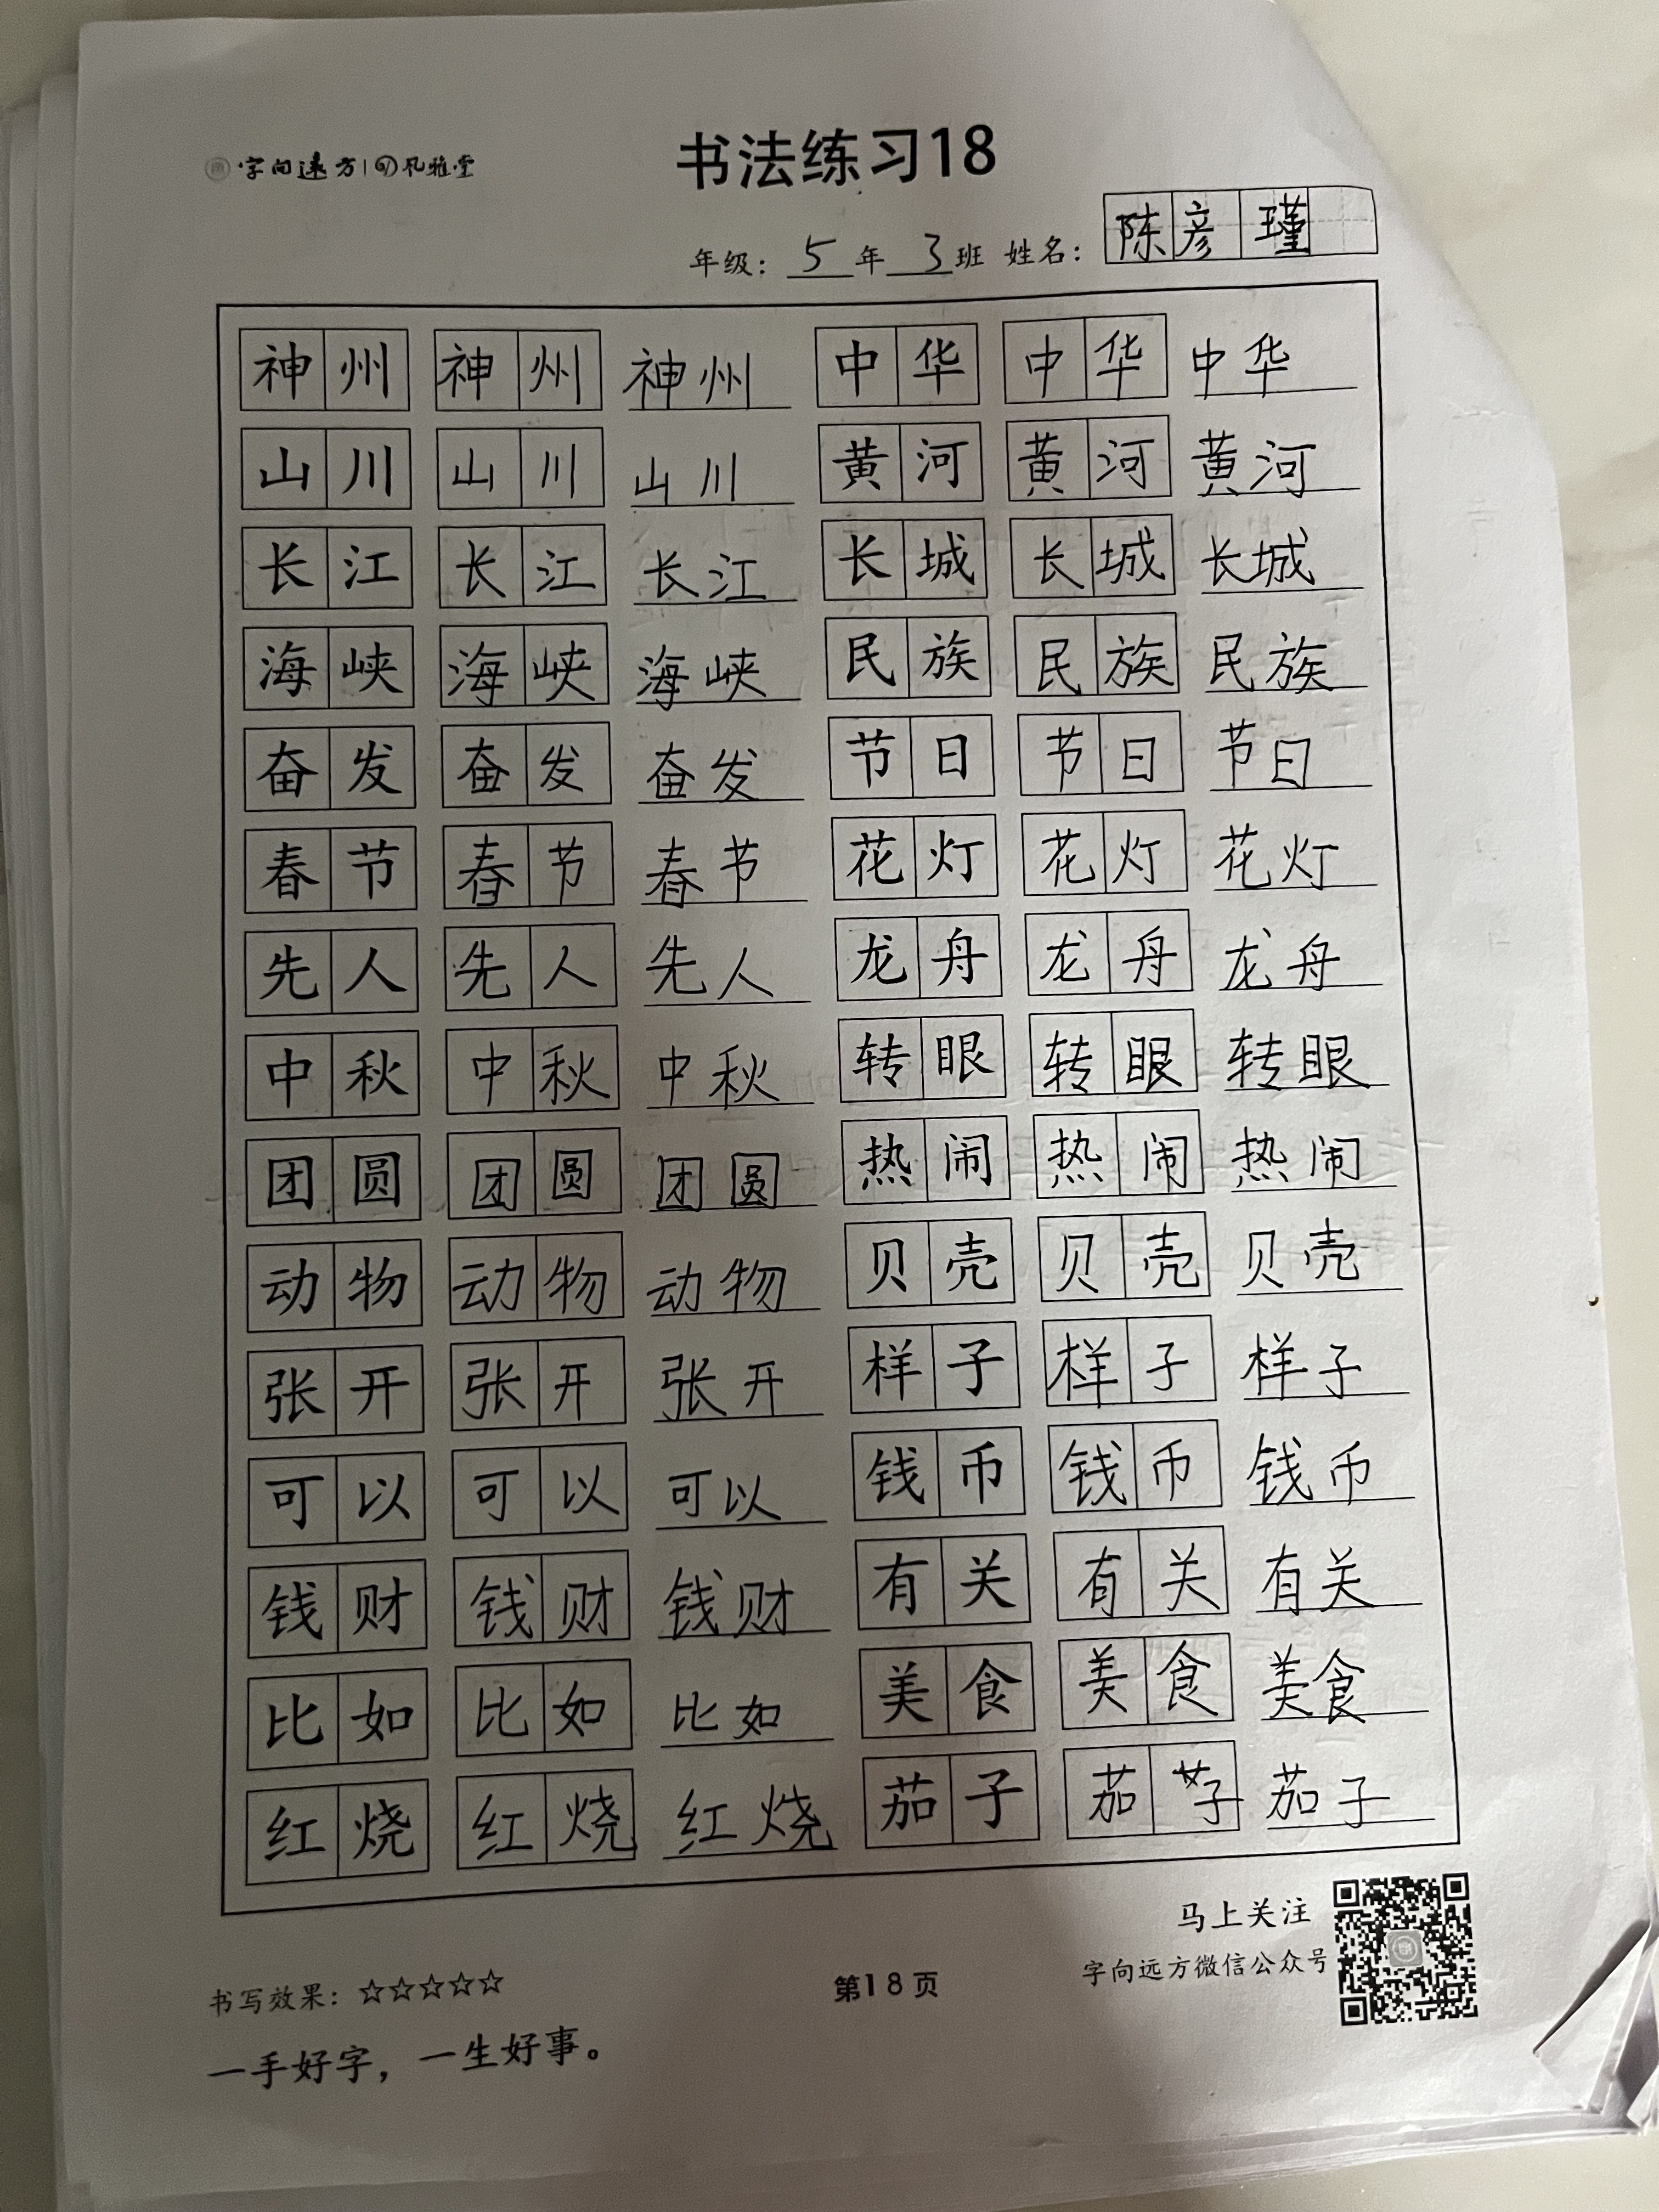 字向远方 | 风雅堂
书法练习18
年级：5年3班 姓名：陈彦瑾
神州 神州 神州 中华 中华 中华
山川 山川 山川 黄河 黄河 黄河
长江 长江 长江 长城 长城 长城
海峡 海峡 海峡 民族 民族 民族
奋发 奋发 奋发 节日 节日 节日
春节 春节 春节 花灯 花灯 花灯
先人 先人 先人 龙舟 龙舟 龙舟
中秋 中秋 中秋 转眼 转眼 转眼
团圆 团圆 团圆 热闹 热闹 热闹
动物 动物 动物 贝壳 贝壳 贝壳
张开 张开 张开 样子 样子 样子
可以 可以 可以 钱币 钱币 钱币
钱财 钱财 钱财 有关 有关 有关
比如 比如 比如 美食 美食 美食
红烧 红烧 红烧 茄子 茄子 茄子
马上关注
字向远方微信公众号
书写效果：☆☆☆☆☆
第18页
一手好字，一生好事。